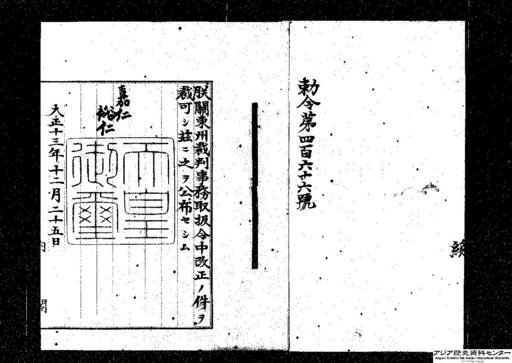 勅令第四百六十六號
朕關東州裁判事務取扱令中改正ノ件ヲ
裁可シ茲ニ之ヲ公布セシム
嘉仁
裕仁
天皇
御璽
大正十三年十二月二十五日
内閣
アジア歴史資料センター
Japan Center for Asian Historical Records